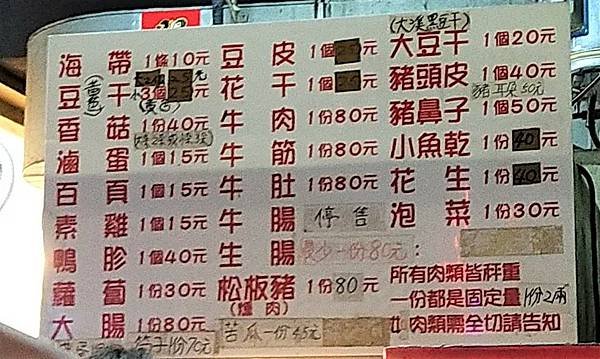 海帶 1條10元
豆干 3個25元
(黃色)
香菇 1份40元
滷蛋 1個15元
百頁 1個15元
素雞 1個15元
鴨胗 1個40元
蘿蔔 1份30元
大腸 1份80元
筍子1份70元
豆皮 1個20元
花干 1個20元
牛肉 1份80元
牛筋 1份80元
牛肚 1份80元
牛腸 停售
生腸 最少一份80元
松板豬 1份80元
(燻肉)
苦瓜一份45元
(大溪黑豆干)
大豆干 1個20元
豬頭皮 1個40元
豬耳朵50元
豬鼻子 1個50元
小魚乾 1份40元
花生 1份40元
泡菜 1份30元
所有肉類皆秤重
一份都是固定量1份2兩
肉類需全切請告知